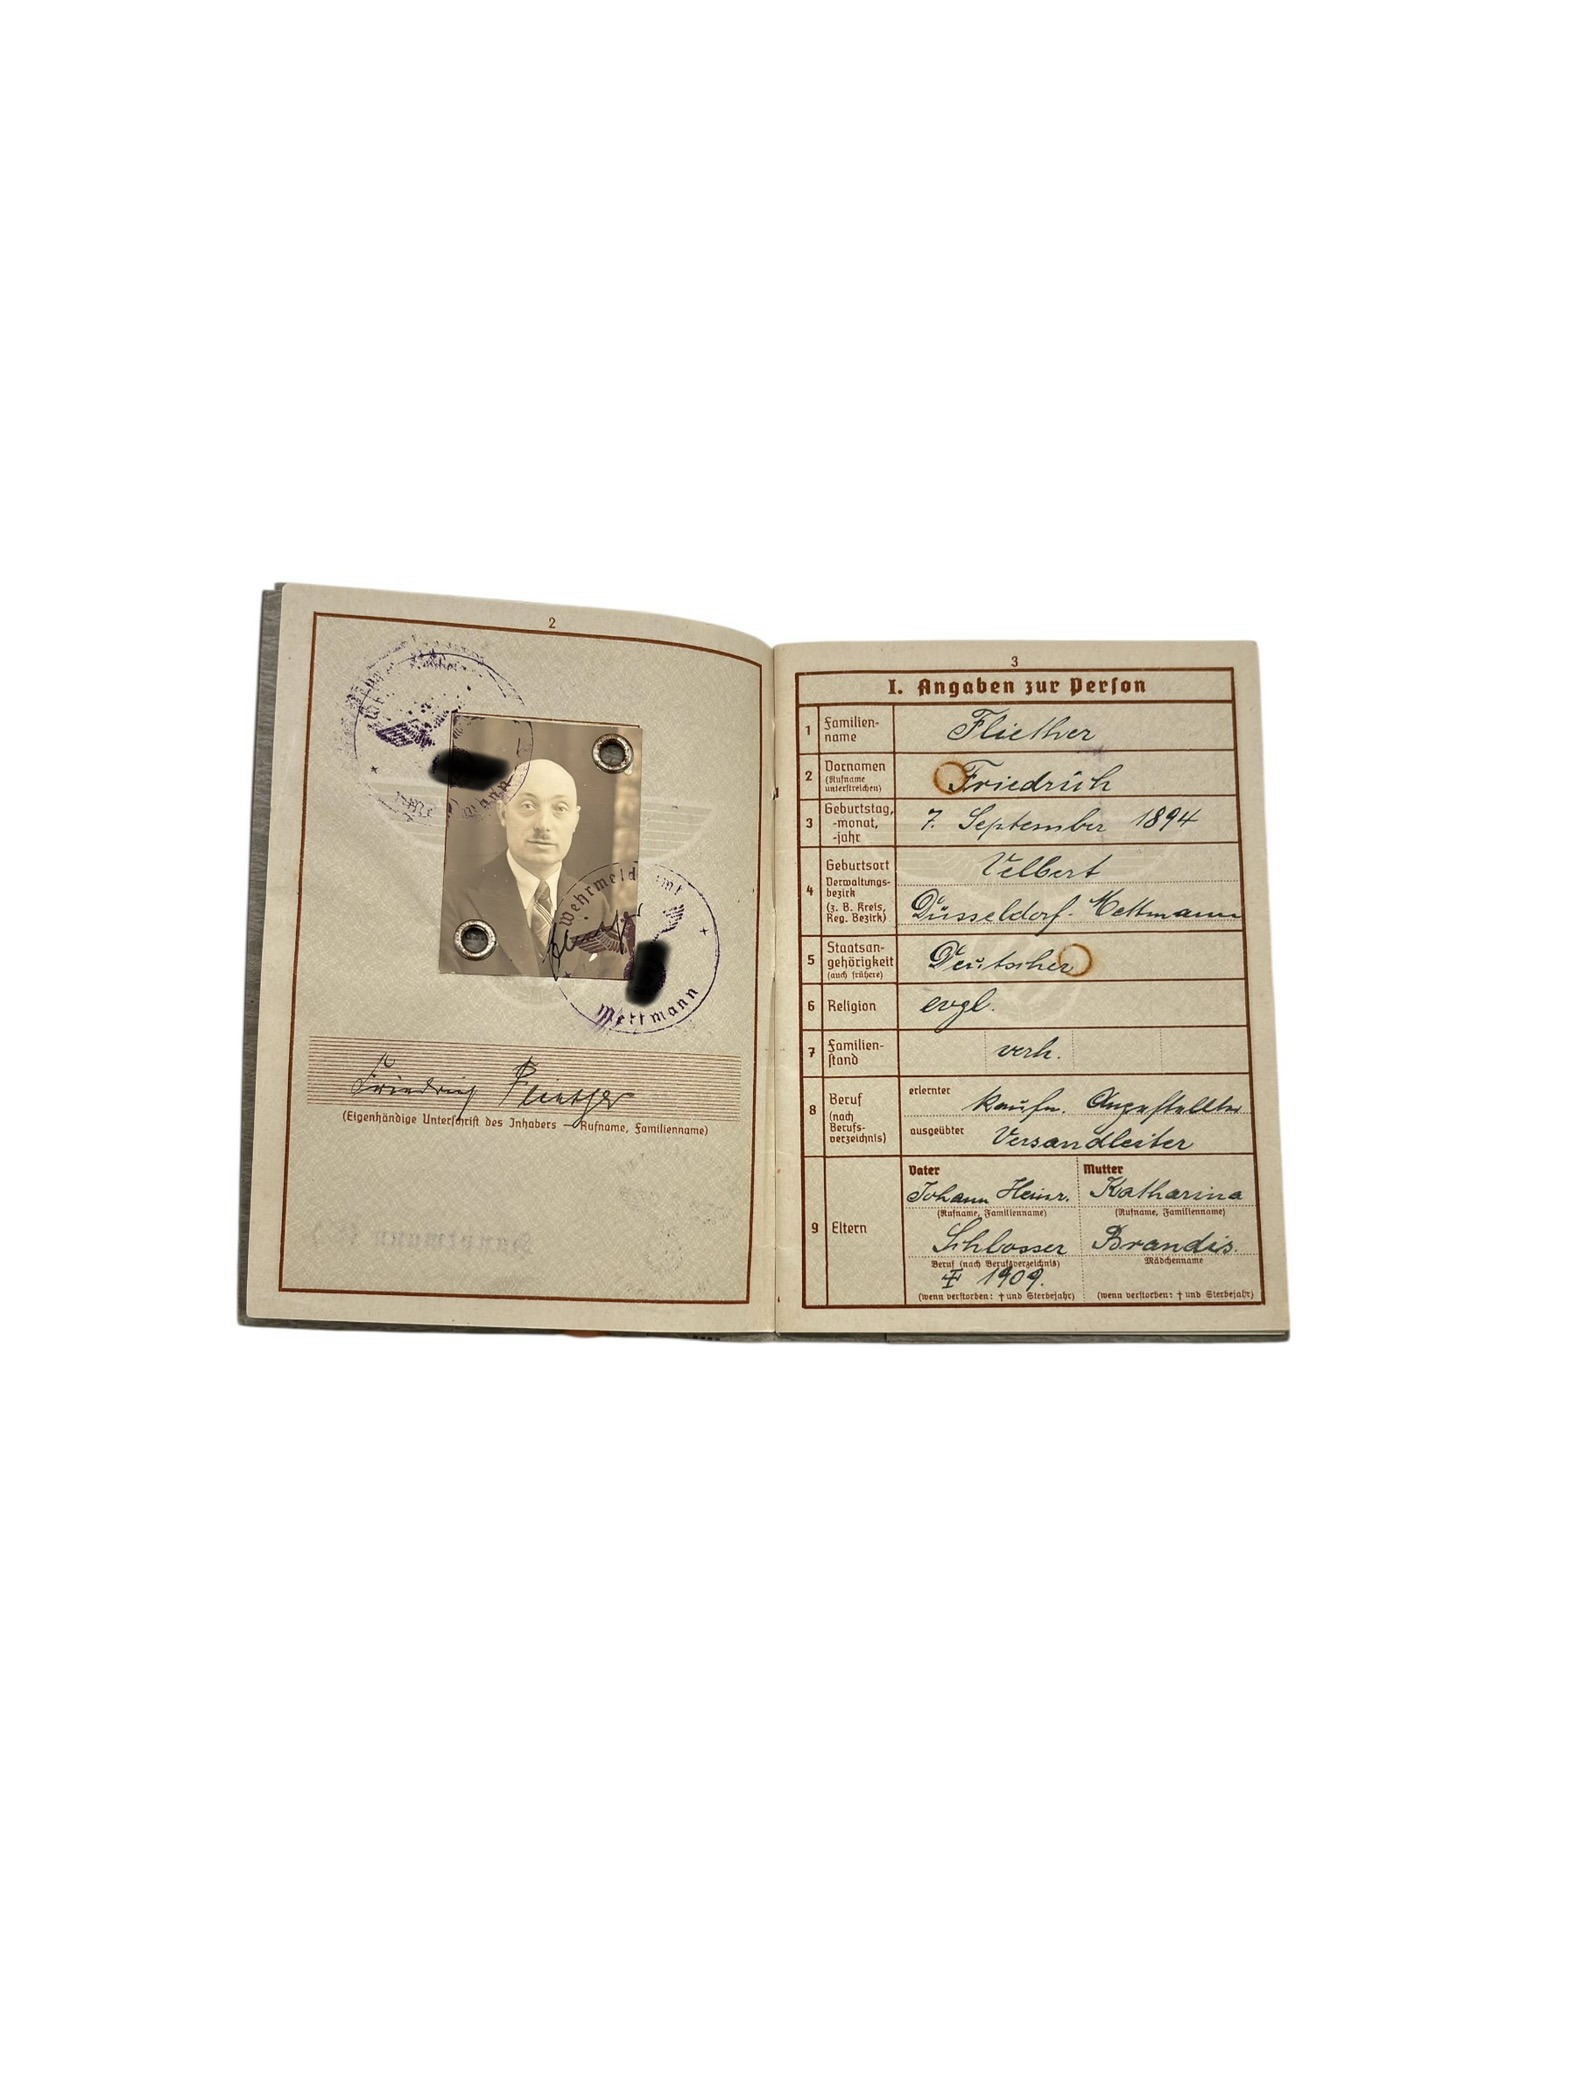 2
Wehrmeldeamt
Mettmann
Friedrich Fliether
(Eigenhändige Unterschrift des Inhabers — Rufname, Familienname)
3
I. Angaben zur Person
1 Familien-
name
Fliether
2 Vornamen
(Rufname
unterstreichen)
Friedrich
3 Geburtstag,
-monat,
-jahr
7. September 1894
4 Geburtsort
Verwaltungs-
bezirk
(z. B. Kreis,
Reg. Bezirk)
Velbert
Düsseldorf-Mettmann
5 Staatsan-
gehörigkeit
(auch frühere)
Deutscher
6 Religion
evgl.
7 Familien-
stand
verh.
8 Beruf
(nach
Berufs-
verzeichnis)
erlernter
kaufm. Angestellter
ausgeübter
Versandleiter
9 Eltern
Vater
Johann Heinr.
(Rufname, Familienname)
Schlosser
Beruf (nach Berufsverzeichnis)
† 1909.
(wenn verstorben: † und Sterbejahr)
Mutter
Katharina
(Rufname, Familienname)
Brandis.
Mädchenname
(wenn verstorben: † und Sterbejahr)